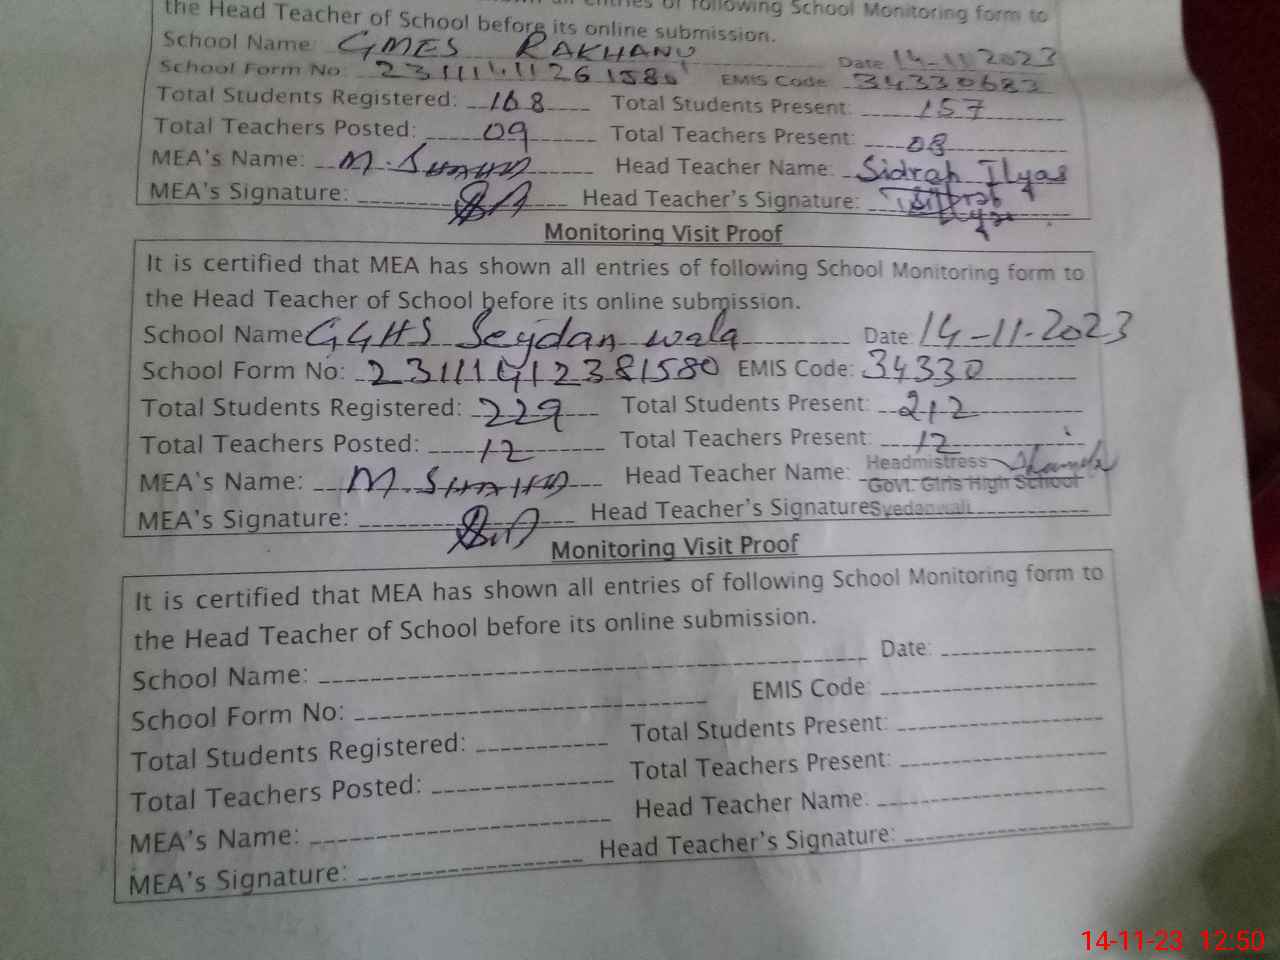 the Head Teacher of School before its online submission.
School Name: GMES RAKHANU Date 14-11 2023
School Form No: EMIS Code 34330683
Total Students Registered: 168 Total Students Present: 157
Total Teachers Posted: 09 Total Teachers Present: 08
MEA's Name: M. SHAHID Head Teacher Name: Sidrah Ilyas
MEA's Signature: Head Teacher's Signature:
Monitoring Visit Proof
It is certified that MEA has shown all entries of following School Monitoring form to
the Head Teacher of School before its online submission.
School Name GGHS Seydan wala Date: 14-11-2023
School Form No: 231114412381580 EMIS Code: 34330
Total Students Registered: 229 Total Students Present: 212
Total Teachers Posted: 12 Total Teachers Present: 12
MEA's Name: M. SHAHID Head Teacher Name: Headmistress
Govt. Girls High School
MEA's Signature: Head Teacher's Signature Syedanwali
Monitoring Visit Proof
It is certified that MEA has shown all entries of following School Monitoring form to
the Head Teacher of School before its online submission.
School Name: Date:
School Form No: EMIS Code:
Total Students Registered: Total Students Present:
Total Teachers Posted: Total Teachers Present:
MEA's Name: Head Teacher Name:
MEA's Signature: Head Teacher's Signature:
14-11-23 12:50